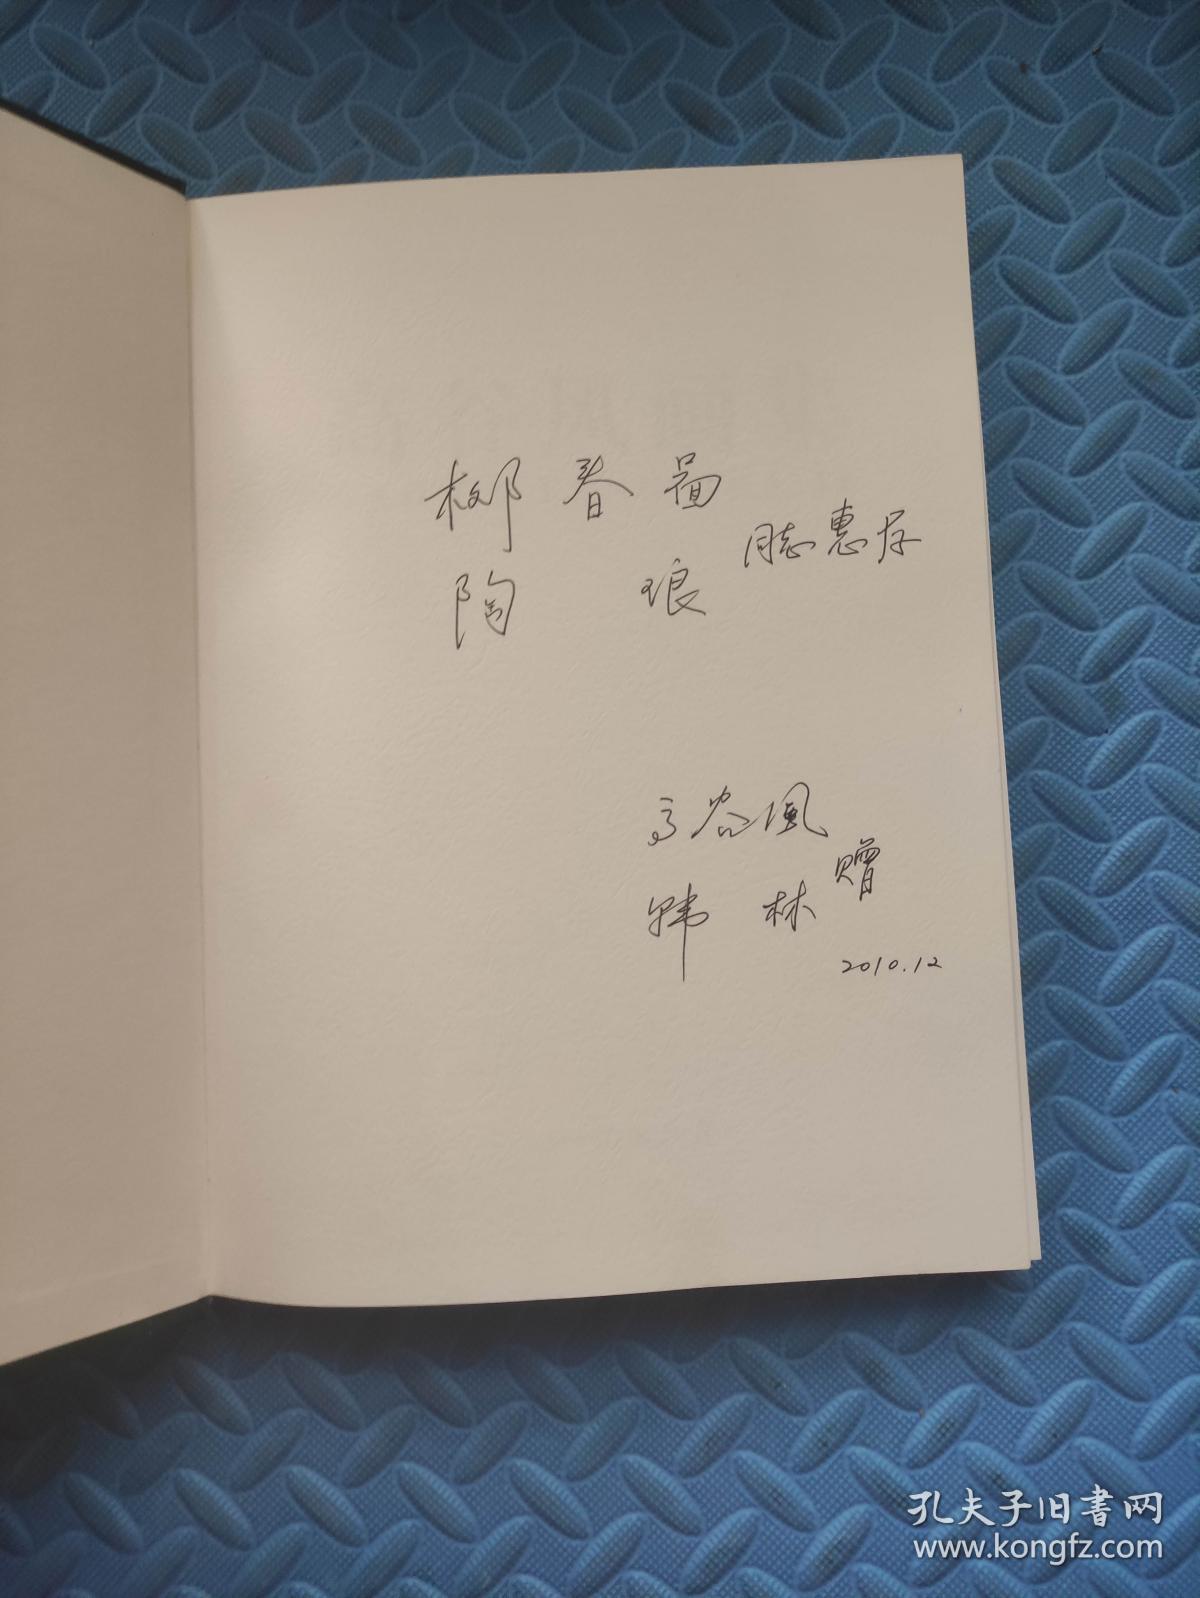 柳春
陶 琅 同志惠存
高 風
韩 林 赠
2010.12
孔夫子旧書网
www.kongfz.com